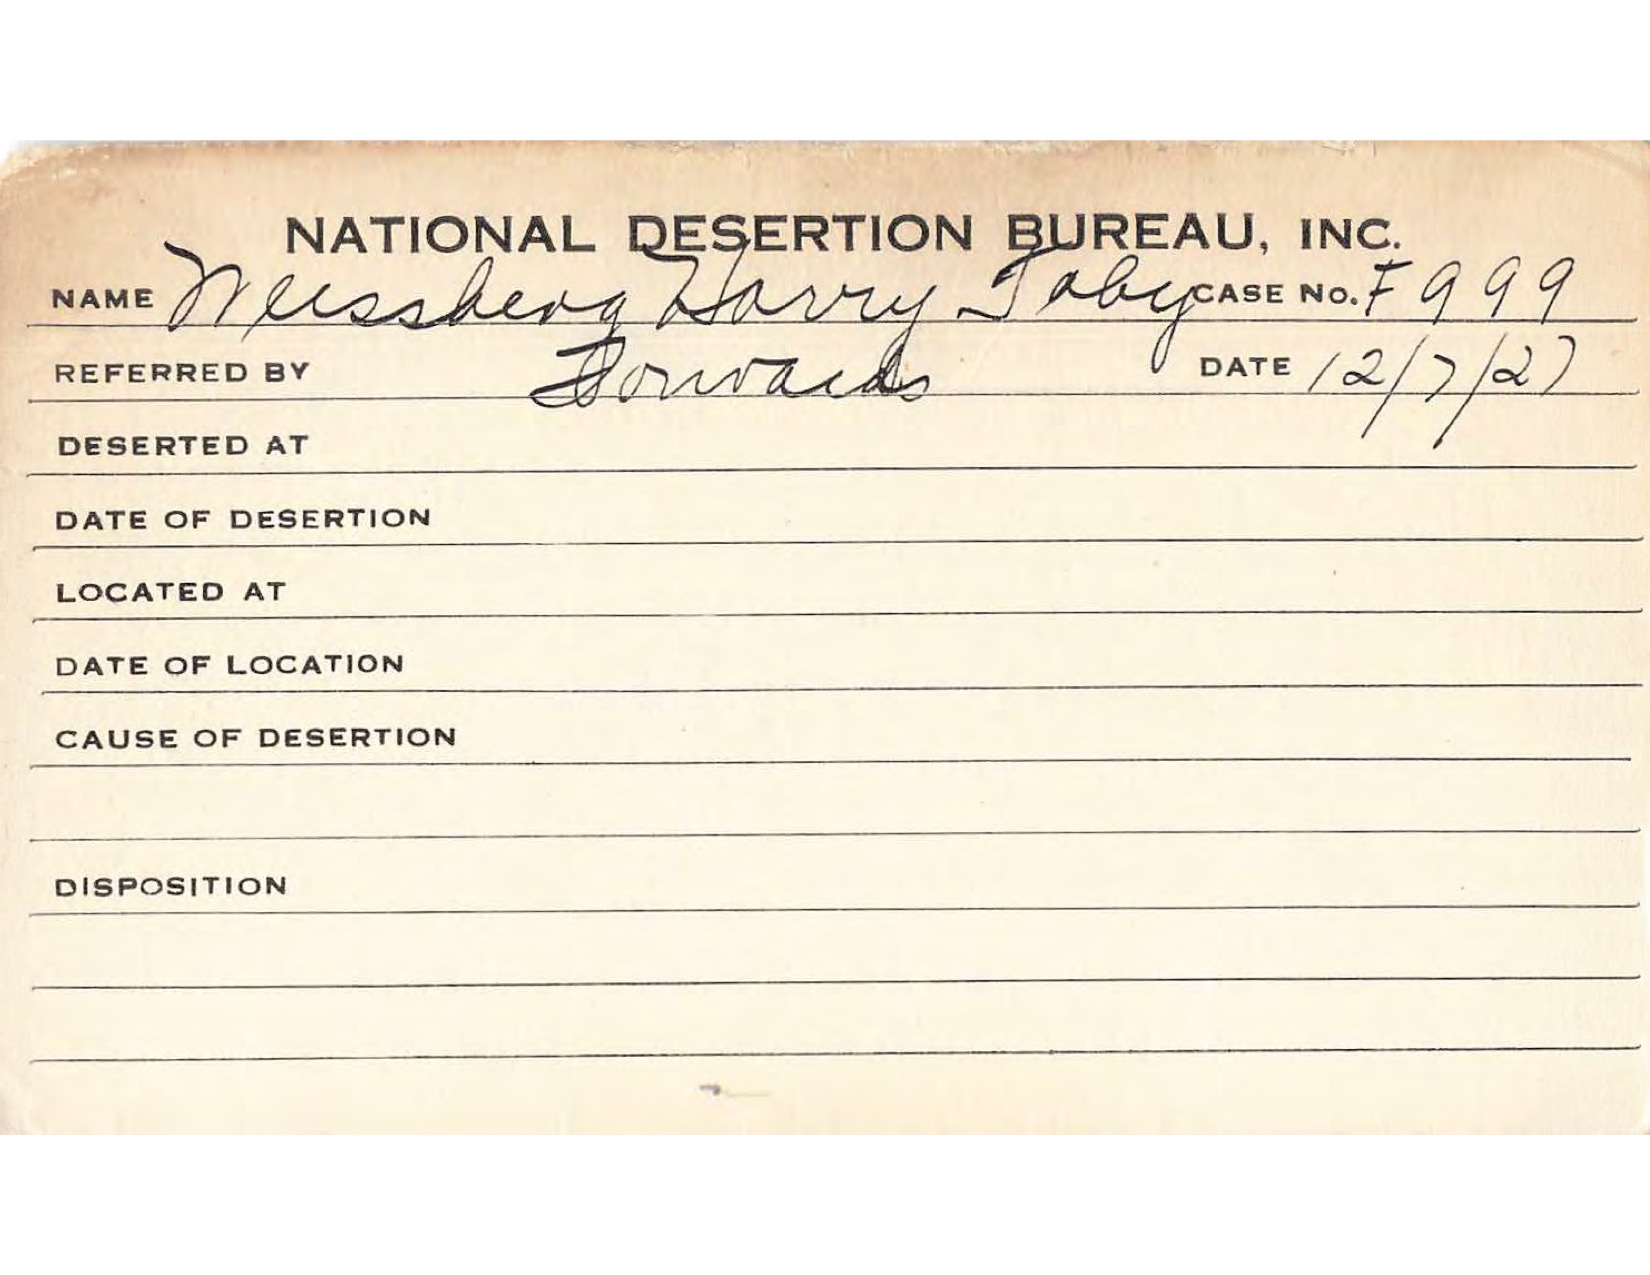 NATIONAL DESERTION BUREAU, INC.
NAME Weissberg Harry Toby CASE No. F 999
REFERRED BY Forwards DATE 12/7/27
DESERTED AT
DATE OF DESERTION
LOCATED AT
DATE OF LOCATION
CAUSE OF DESERTION
DISPOSITION